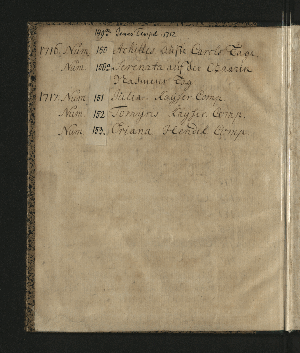 149b Janus Tempel 1712
1716. Num 150 Achilles auf Carols Tage
Num 150a Serenata auf der Czaarin
Nahmens Tag
1717. Num 151 Julia Kayser Comp.
Num 152 Tomyris Kayser Comp.
Num 153. Oriana Hendel Comp